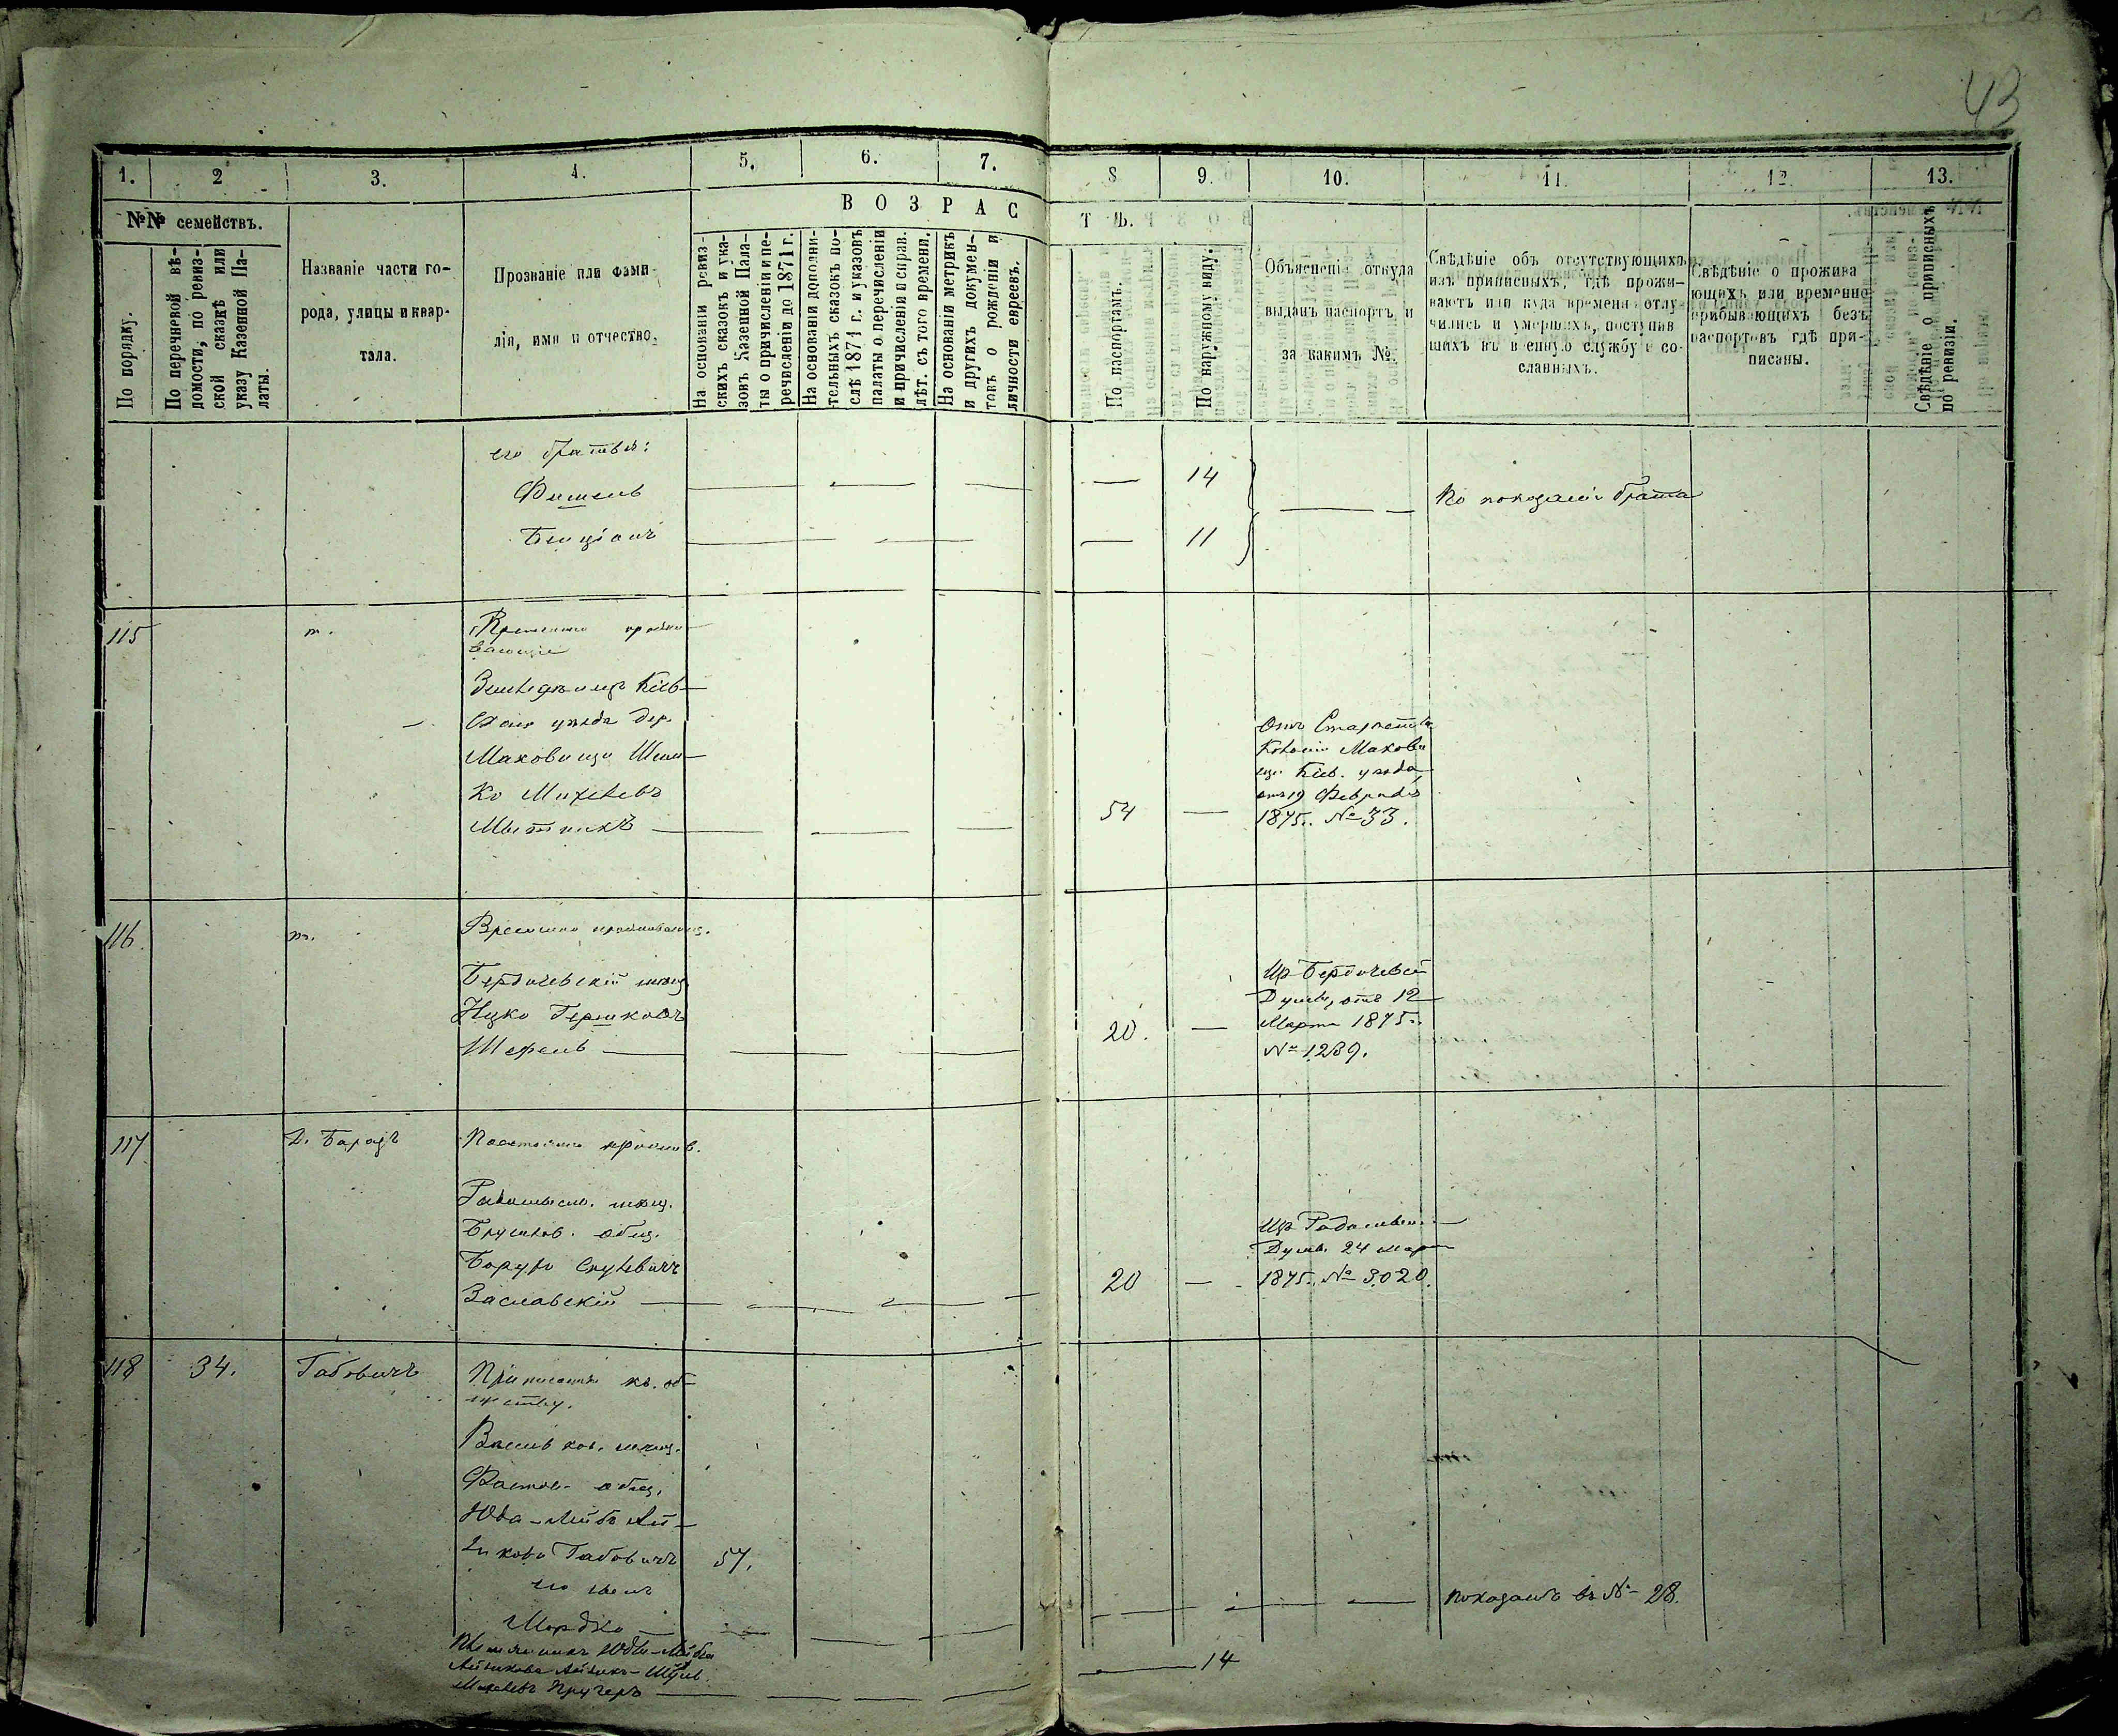 43
1.
2
3.
4.
5.
6.
7.
8
9.
10.
11.
12
13.
№№ семействъ.
По порядку.
По перечневой вѣ-
домости, по ревиз-
ской сказкѣ или
указу Казенной Па-
латы.
Названіе части го-
рода, улицы и квар-
тала.
Прозваніе или фами-
лія, имя и отчество.
ВОЗРАС
На основаніи ревиз-
скихъ сказокъ и ука-
зовъ Казенной Пала-
ты о причисленіи и пе-
речисленіи до 1871 г.
На основаніи дополни-
тельныхъ сказокъ по-
слѣ 1871 г. и указовъ
палаты о перечисленіи
и причисленіи и справ.
лѣт. съ того времени.
На основаніи метрикъ
и другихъ докумен-
товъ о рожденіи и
личности евреевъ.
ТЪ.
По паспортамъ.
По наружному виду.
Объясненіе откуда
выданъ паспортъ и
за какимъ №.
Свѣдѣніе объ отсутствующихъ
изъ приписныхъ, гдѣ прожи-
ваютъ или куда временно отлу-
чились и умершихъ, поступив
шихъ въ военную службу и со-
сланныхъ.
Свѣдѣніе о прожива
ющихъ или временно
прибывающихъ безъ
паспортовъ гдѣ при-
писаны.
Свѣдѣніе о приписныхъ
по ревизіи.
его братья:
Фишель 14
Бенціонъ 11
По показанію брата
115 т.
Временно прожи
вающіе
Земледѣлецъ Кіев-
скаго уѣзда дер.
Маховищи
Михелевъ
Мытникъ 54 —
Отъ Старосты
Колоніи Махови
щи Кіев. уѣзда
отъ 19 Февраля
1875. № 33.
116. т.
Временно проживающ.
Бердичевскій мѣщ.
Ицко Гершковъ
Шефель 20. —
Изъ Бердичевской
Думы, отъ 12
Марта 1875.
№ 1239.
117 Д. Барацъ
Постоянно прожив.
Радомысль. мѣщ.
Брусилов. общ.
Борухъ Срулевичъ
Заславскій 20 —
Изъ Радомысль
Думы 24 мар
1875. № 3020.
118 34. Габовичъ
Приписанные къ об-
ществу.
Васильков. мѣщ.
Фастов. общ.
Юда-Лейбъ Ай-
зиковъ Габовичъ 57.
его сынъ
Мордко —
показанъ въ № 28.
Племянникъ Юды-Лейбы
Айзикова Айзикъ-Шулев
Михелевъ 14